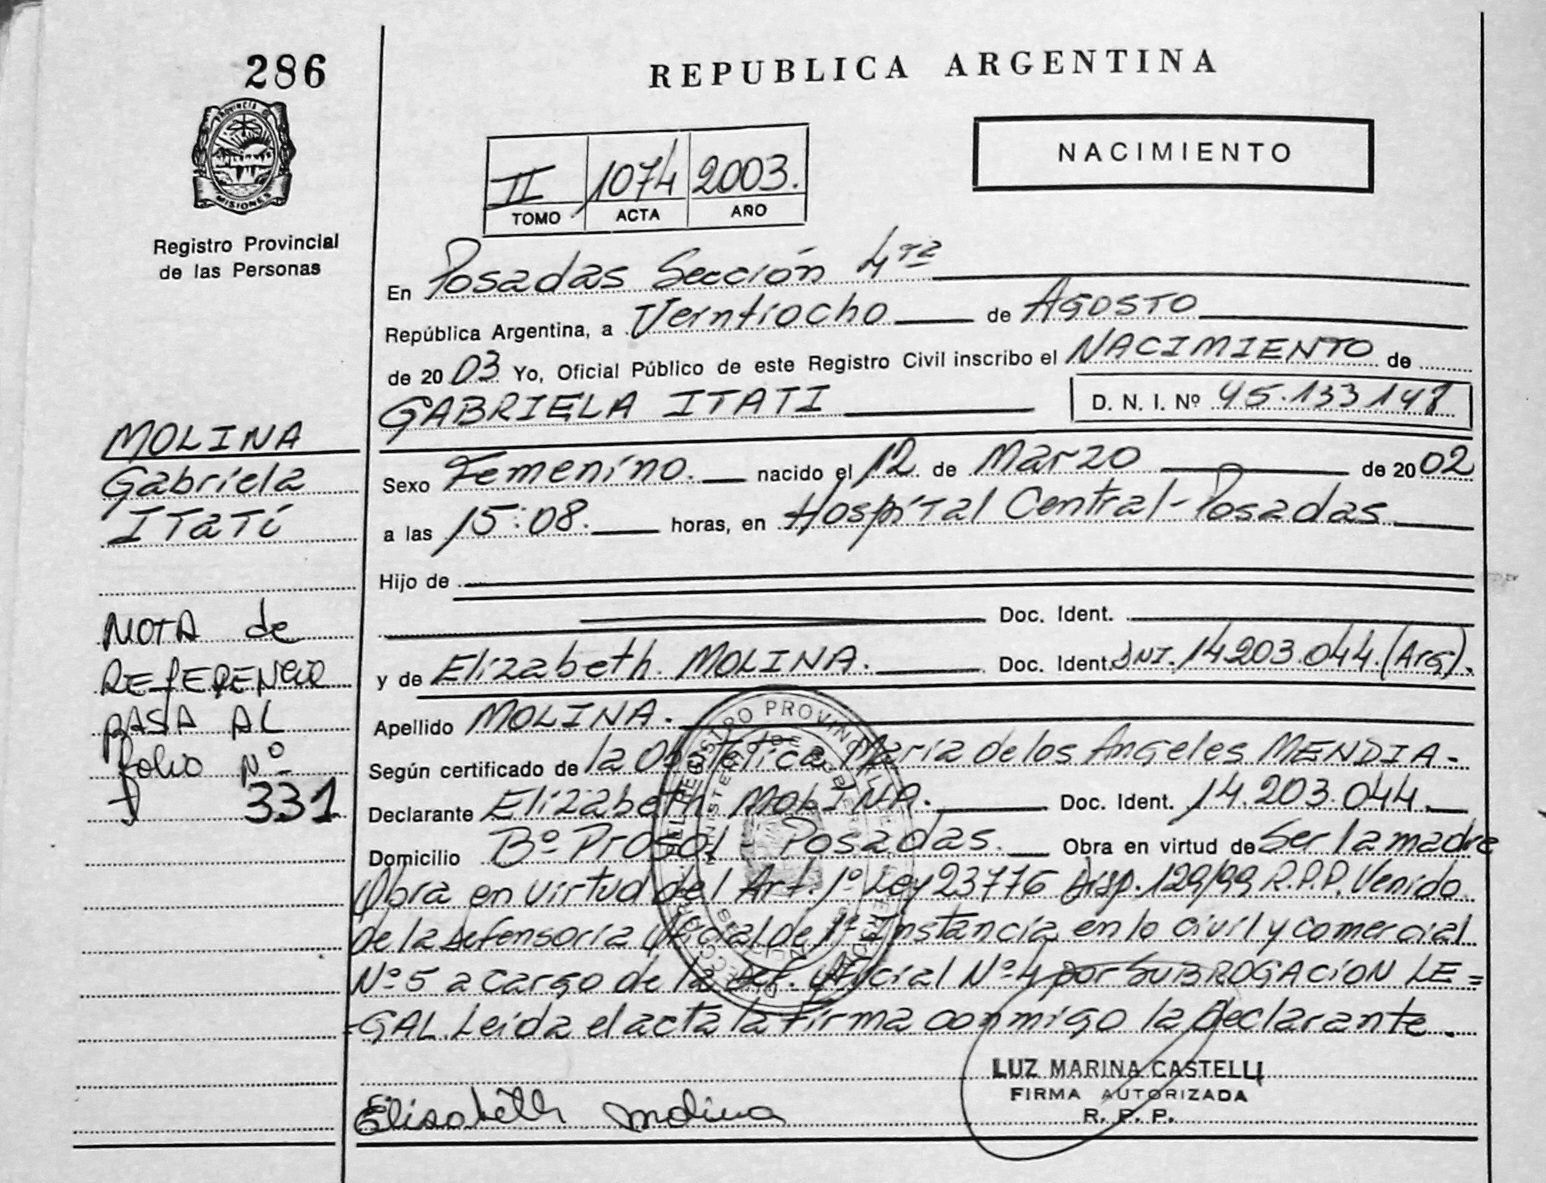 286
REPUBLICA ARGENTINA
PROVINCIA DE
MISIONES
Registro Provincial
de las Personas
NACIMIENTO
II 1074 2003.
TOMO ACTA AÑO
En Posadas Sección 4ta
República Argentina, a Veintiocho de AGOSTO
de 2003 Yo, Oficial Público de este Registro Civil inscribo el NACIMIENTO de
GABRIELA ITATI D. N. I. Nº 45.133.148
MOLINA
Gabriela
ITaTí
Sexo Femenino. nacido el 12 de Marzo de 2002
a las 15:08. horas, en HospiTal Central-Posadas
Hijo de
Doc. Ident.
y de Elizabeth. MOLINA. Doc. Ident. DNI. 14.203.044.(Arg).
NOTA de
REFERENCIA
PASA AL
folio Nº
331
Apellido MOLINA.
Según certificado de la Obstetica María de los Angeles MENDIA-
Declarante Elizabeth MOLINA. Doc. Ident. 14.203.044.
Domicilio Bº Prosol - Posadas. Obra en virtud de Ser la madre
Obra en virtud del Art. 1º Ley 23776 Disp. 129/99 R.P.P. Venido
de la Defensoria Oficial de 1ª Instancia en lo civil y comercial
Nº 5 a cargo de la Def. Oficial Nº 4 por SUBROGACION LE=
-GAL. Leida el acta la firma conmigo la Declarante.
LUZ MARINA CASTELLI
FIRMA AUTORIZADA
R. P. P.
Elisabeth Molina